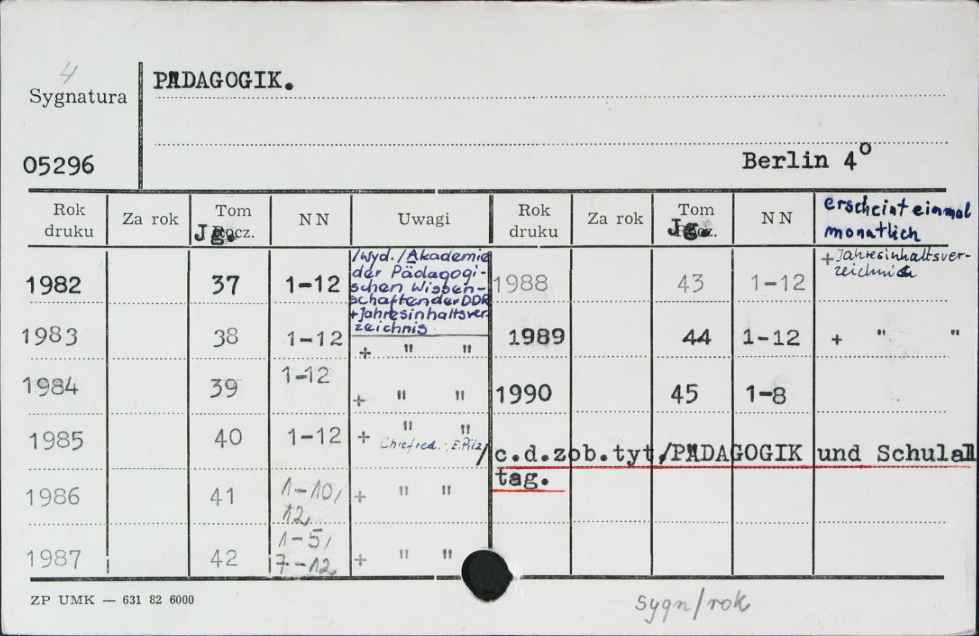 4
Sygnatura
05296
PÄDAGOGIK.
Berlin 4°
Rok druku Za rok Tom Jg. N N Uwagi Rok druku Za rok Tom Jg. N N erscheint einmal monatlich
1982 37 1-12 /Wyd./Akademie
der Pädagogi-
schen Wissen-
schaften der DDR
+Jahresinhaltsver-
zeichnis
1988 43 1-12 +Jahresinhaltsver-
zeichnis
1983 38 1-12 + " "
1989 44 1-12 + " "
1984 39 1-12 + " "
1990 45 1-8
1985 40 1-12 + " "
Chefred.: E.Pilz
/c.d.zob.tyt/PÄDAGOGIK und Schulall
tag.
1986 41 1-10, 12, + " "
1987 42 1-5, 7-12, + " "
ZP UMK — 631 82 6000
sygn/rok